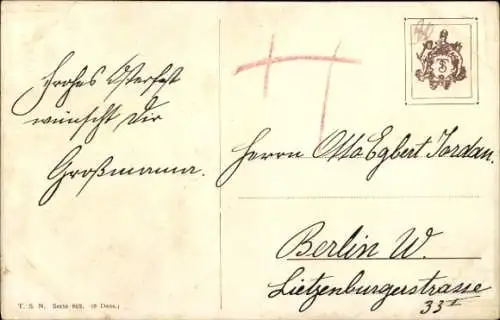 Frohes Osterfest
wünscht Dir
Großmama.
Herrn Otto Egbert Jordan.
Berlin W.
Lietzenburgerstrasse
33 I
T. S. N. Serie 942. (6 Dess.)